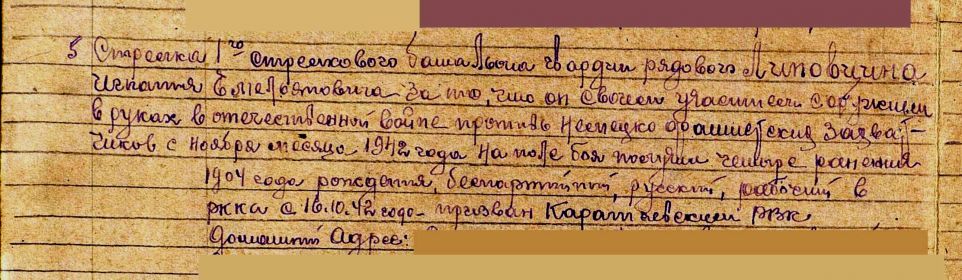 5 Стрелка 1го стрелкового батальона гвардии рядового Липовцина
Игнатия за то, что он своем участием с оружием
в руках в отечественной войне против немецко фашистских захват-
чиков с ноября месяца 1942 года на поле боя получил четыре ранения
1904 года рождения, беспартийный, русский, рабочий в
РККА с 16.10.42 года призван РВК
Домашний адрес: